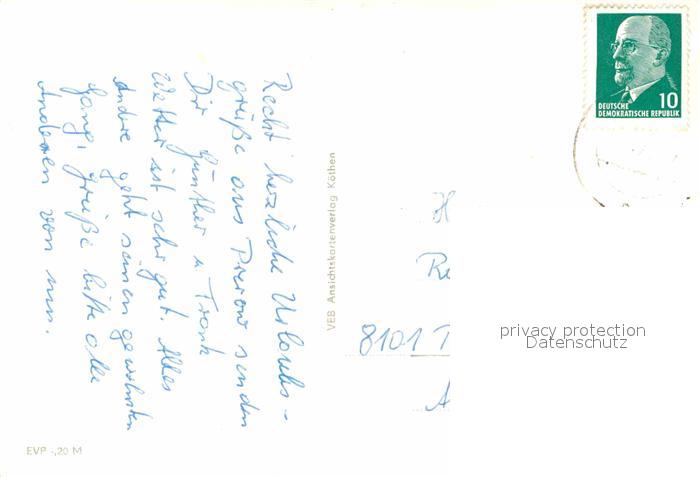 Recht herzliche Urlaubs-
grüße aus Prerow senden
Dir Günther u Frank
Wetter ist sehr gut. Alles
andre geht seinen gewohnten
Gang, grüße bitte alle
Anderen von uns.
VEB Ansichtskartenverlag Köthen
EVP -,20 M
10
DEUTSCHE
DEMOKRATISCHE REPUBLIK
H
Re
8101 T
A
privacy protection
Datenschutz